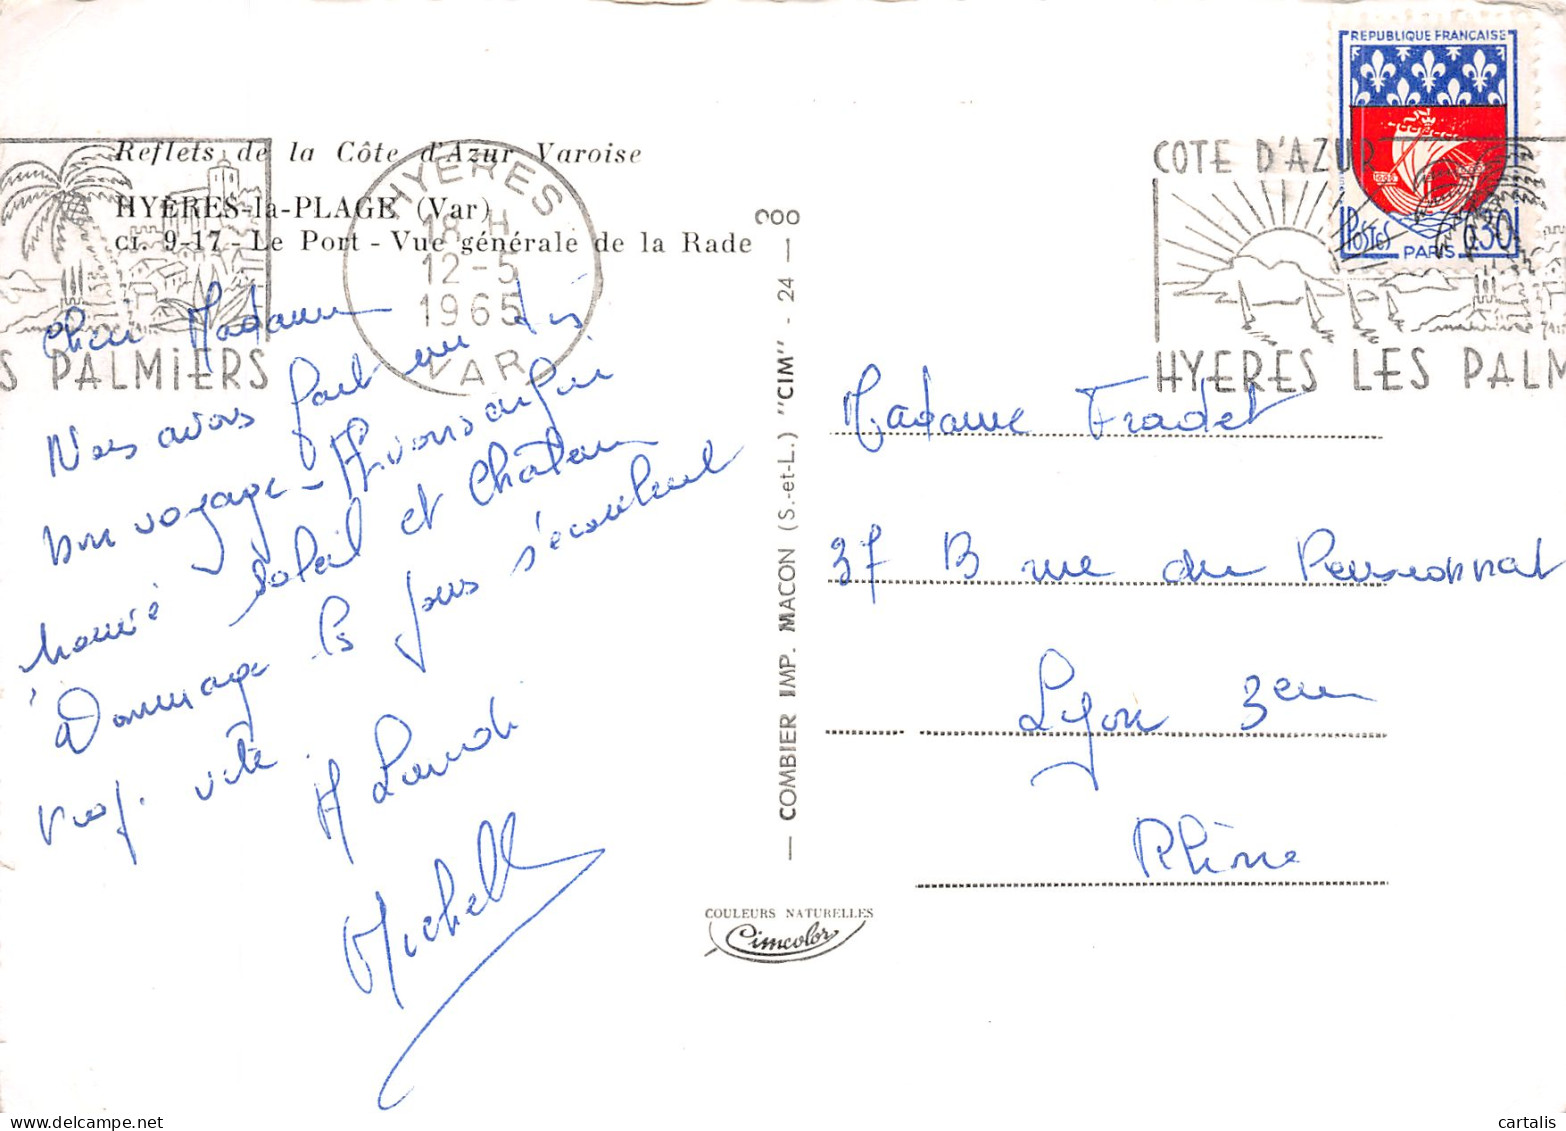 Reflets de la Côte d'Azur Varoise
HYÈRES-la-PLAGE (Var)
CI. 9-17 - Le Port - Vue générale de la Rade
S PALMiERS
HYERES
18 H
12-5
1965
VAR
Madame
Nous avons fait un très
bon voyage - Avons enfin
soleil et
Dommage les jours s'écoulent
trop vite.
A Lundi
Michelle
— COMBIER IMP. MACON (S.-et-L.) "CIM" - 24 —
COULEURS NATURELLES
Cimcolor
REPUBLIQUE FRANÇAISE
POSTES
0,30
PARIS
COTE D'AZUR
HYERES LES PALM
Madame Fradet
37 B rue du Pensionnat
Lyon 3eme
Rhône
cartalis